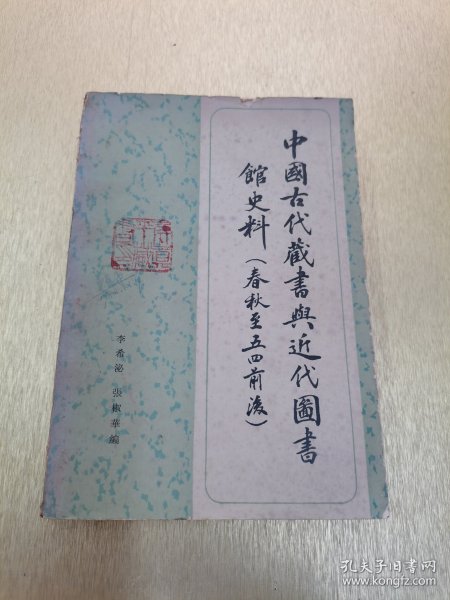 中國古代蔵書與近代圖書
館史料（春秋至五四前後）
李希泌 張椒華編
孔夫子旧书网
www.kongfz.com